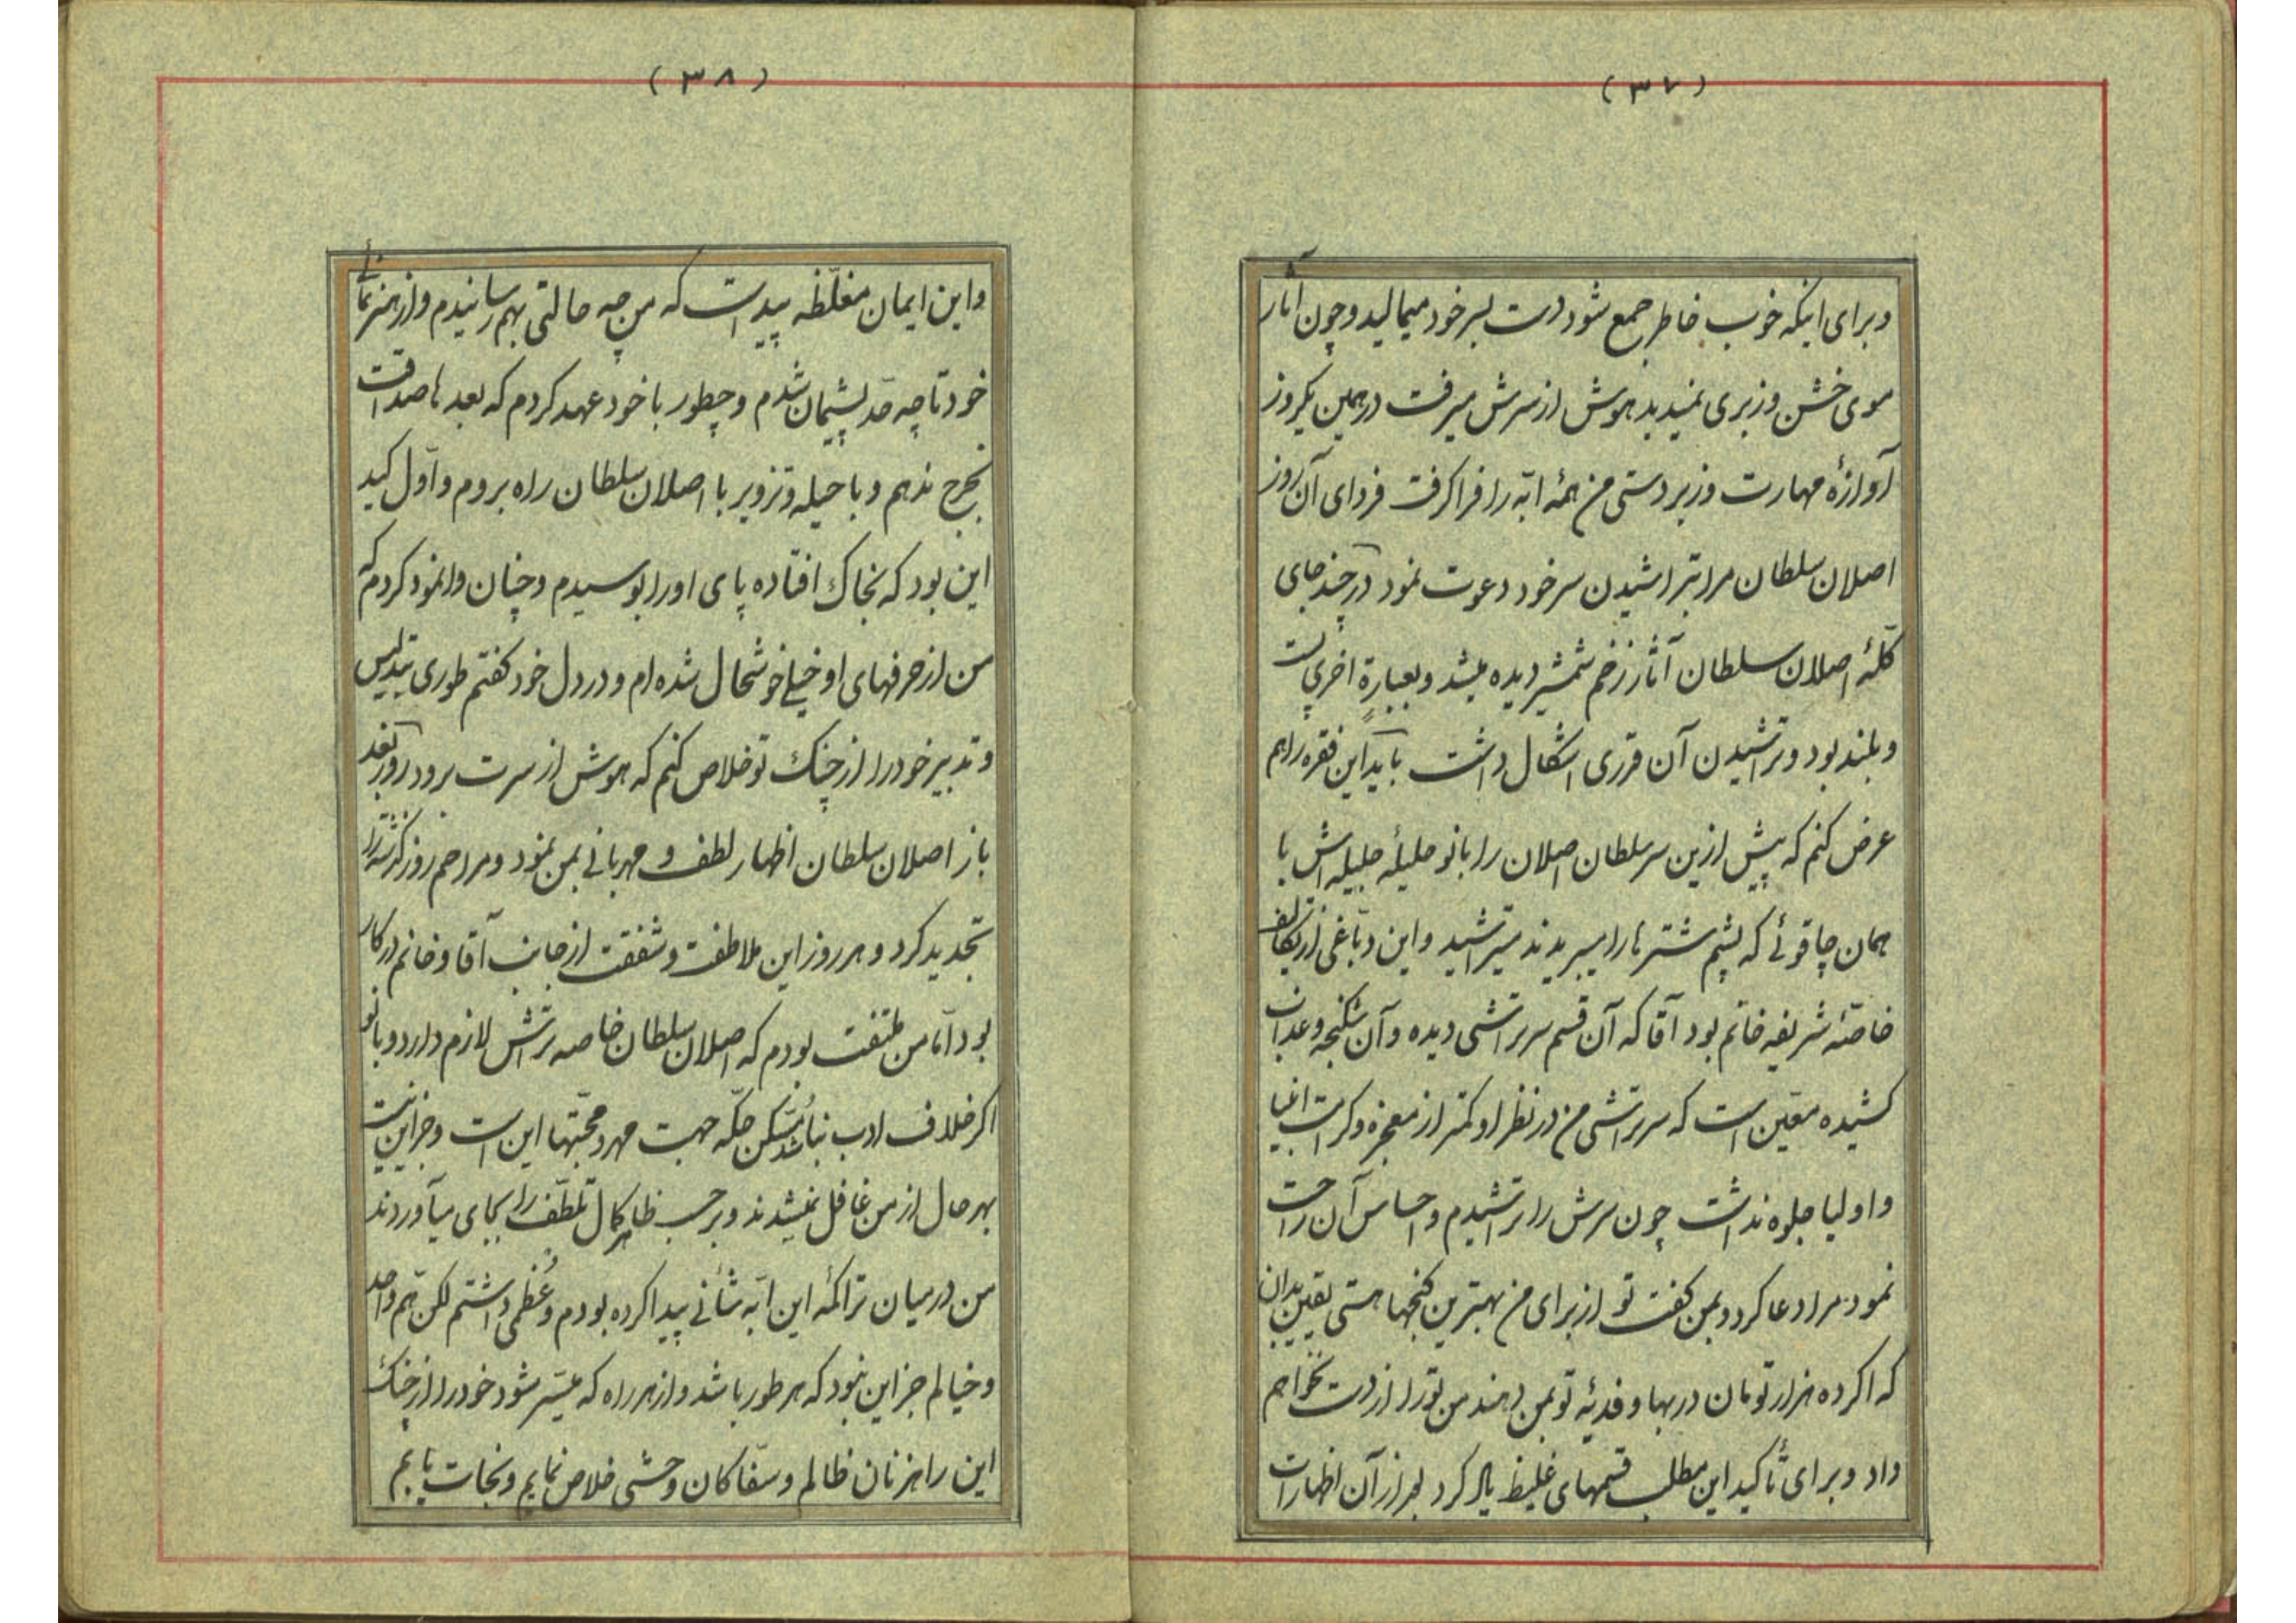 (۳۷)
و برای اینکه خوب خاطر جمع شود دست بسر خود میمالید و چون آثار
موی خشن و زبری نمیدید هوش از سرش میرفت در همین یکروز
آوازهٔ مهارت و زبردستی من همهٔ ابّه را فرا کرفت فردای آن روز
اصلان سلطان مرا بتراشیدن سر خود دعوت نمود در چند جای
کلّهٔ اصلان سلطان آثار زخم شمشیر دیده میشد و بعبارة اخری پست
و بلند بود و تراشیدن آن قرری اشکال داشت باید این فقره را هم
عرض کنم که پیش ازین سر سلطان اصلان را بانو حلیلهٔ جلیله اش با
همان چاقوئی که پشم شتر ها را میبریدند میتراشید و این دبّاغی از تکالیف
خاصّهٔ شریفه خانم بود آقا که آن قسم سرتراشی دیده و آن شکنجه و عذاب
کشیده معیّن است که سرتراشی من در نظر او کمتر از معجزه و کرامت انبیا
و اولیا جلوه نداشت چون سرش را تراشیدم و احساس آن راحت
نمود مرا دعا کرد و بمن کفت تو از برای من بهترین کنجها هستی یقین بدان
که اکر ده هزار تومان در بها و فدیهٔ تو بمن دهند من تو را از دست نخواهم
داد و برای تأکید این مطلب قسمهای غلیظ یاد کرد بعد از آن اظهارات
(۳۸)
و این ایمان مغلّظه پیداست که من چه حالتی بهم رسانیدم و از هنر نمائی
خود تا چه حدّ پشیمان شدم و چطور با خود عهد کردم که بعد ها صداقت
بخرج ندهم و با حیله و تزویر با اصلان سلطان راه بروم و اوّل کید
این بود که بخاک افتاده پای او را بوسیدم و چنان وانمود کردم که
من از حرفهای او خیلی خوشحال شده ام و در دل خود کفتم طوری بتدلیس
و تدبیر خود را از چنک تو خلاص کنم که هوش از سرت برود روز بعد
باز اصلان سلطان اظهار لطف و مهربانی بمن نمود و مراحم روز کذشته را
تجدید کرد و هر روز این ملاطفت و شفقت از جانب آقا و خانم در کار
بود امّا من ملتفت بودم که اصلان سلطان خاصه تراش لازم دارد و بانو
اکر خلاف ادب نباشد مسکّن حکّه جهت مهر و محبّتها این است و جز این نیست
بهر حال از من غافل نمیشدند و بر حسب ظاهر کمال تلطّف را بجای میآوردند
من در میان تراکمهٔ این ابّه شأنی پیدا کرده بودم و عُظمی داشتم لکن همّ واحد
و خیالم جز این نبود که هر طور باشد و از هر راه که میّسر شود خود را از چنک
این راهزنان ظالم و سفّاکان وحشی خلاص نمایم و نجات یابم